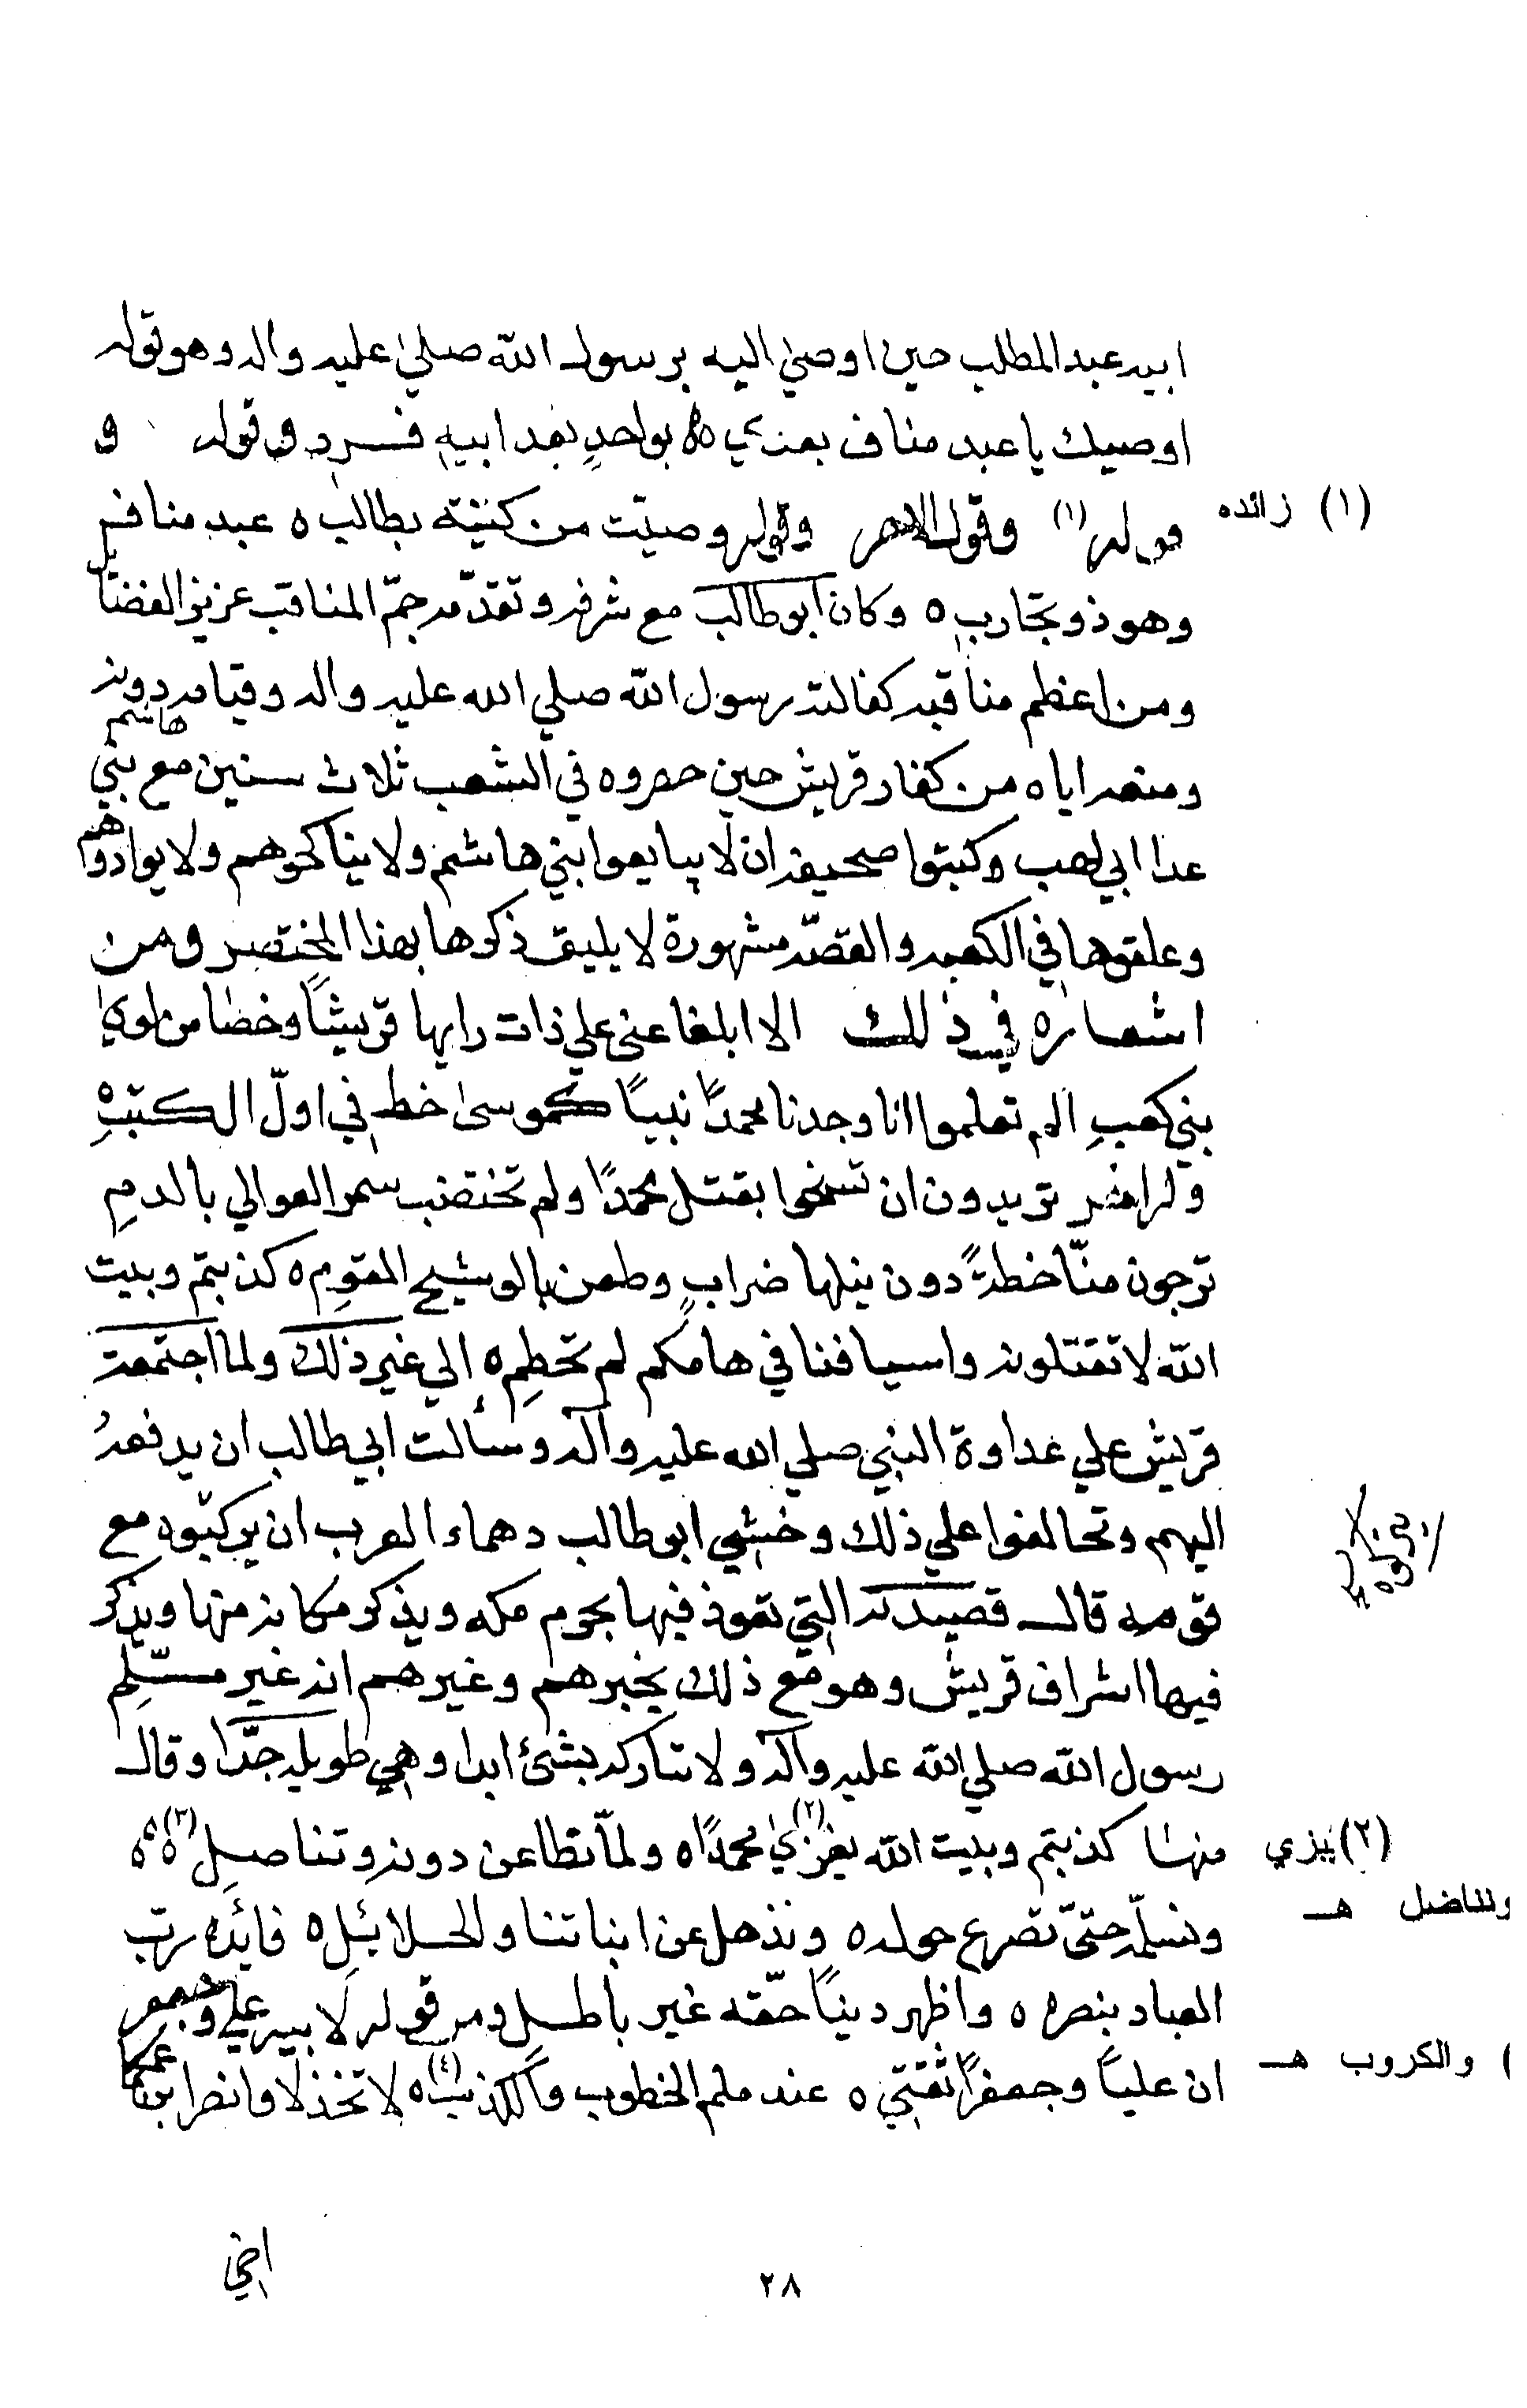 ابيه عبد المطلب حين اوصى اليه برسول الله صلى عليه واله وهو قوله
اوصيك يا عبد مناف بعدي ٥ بواحدٍ بعد ابيه فرد وقوله و
(١) زائده
(١) وقول وقوله وصيّت من كنيته بطالب ٥ عبد مناف
وهو ذو تجارب ٥ وكان ابو طالب مع شرفه وتقدّمه جمّ المناقب عزيز الفضتا
ومن اعظم مناقبه كفالته رسول الله صلي الله عليه واله وقيامه دونه
ومنعه اياه من كفار قريش حين حصروه في الشعب ثلاث سنين مع بني هاشم
عدا ابي لهب وكتبوا صحيفه ان لا يبايعوا بني هاشم ولا يناكحوهم ولا يوادوهم
وعلقوها في الكعبه والقصّه مشهورة لا يليق ذكرها بهذا المختصر ومن
اشعاره في ذلك الا ابلغا عني علي ذات رايها قريشًا وخصا من لوي
بني كعبِ الم تعلموا انا وجدنا محمدًا نبيًا كموسى خط في اولّ الكتبِ ٥
وله تريدون ان تسخوا بقتل محمدًا ولم تختضب سمر العوالي بالدمِ
ترجون منّا خطةً دون نيلها ضرابٍ وطعن بالوشيج المقوِم ٥ كذبتم وبيت
الله لا تقتلونه واسيافنا في هامكم لم تحطِم ٥ إلي غير ذلك ولما اجتمعت
قريش علي عداوة النبي صلي الله عليه وآله وسألت ابي طالب ان يدفعهُ
اليهم وتحالفوا علي ذلك وخشي ابو طالب دهماء العرب ان يركبوه مع
قومه قال قصيدته التي تعوذ فيها بحرم مكه ويذكر مكانه منها ويذكر
فيها اشراف قريش وهو مع ذلك يخبرهم وغيرهم انه غير مسّلِم
رسول الله صلي الله عليه وآله ولا تاركه بشئ ابدا وهي طويله جدّا وقال
منها كذبتم وبيت الله يغزي(٢) محمدًا ٥ ولمّا نطاعن دونه وتناصلِ(٣) ٥
(٢) يبزي
ونناضل هـ
ونسلمّه حتىّ نصرع حوله ٥ ونذهل عن ابناتنا والحلائِل ٥ فايّده ربّ
العباد بنصره ٥ واظهر دينًا حقّه غير باطل ومن قوله لابنيه علي وجعفر
ان عليًا وجعفرًا ثقتي ٥ عند ملم الخطوب (٤) ٥ لا تخذلا وانصرا ابن عمكما
) والكروب هـ
اخي
٢٨